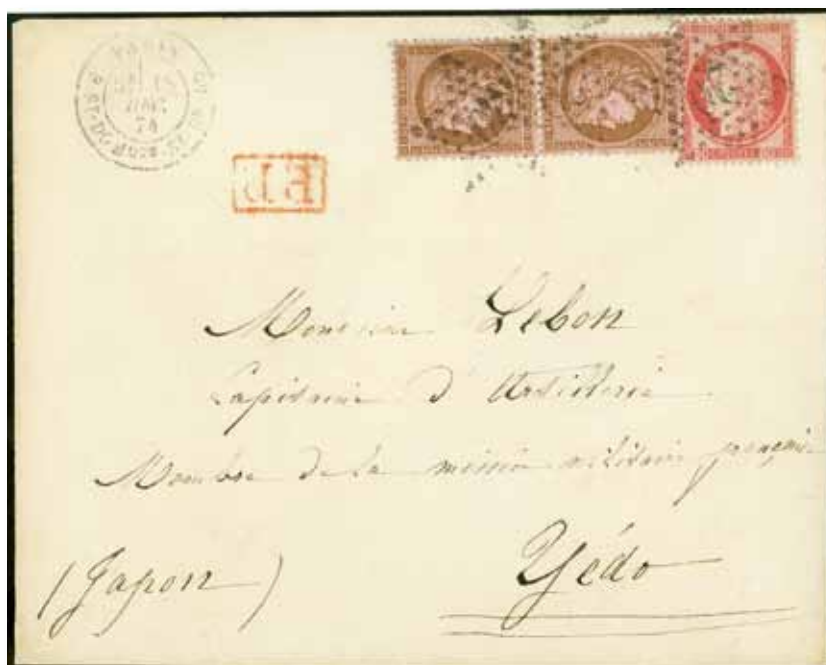 PARIS
74
P.D.
Monsieur Lebon
Capitaine d'Artillerie
Membre de la mission militaire française
Yédo
(Japon)